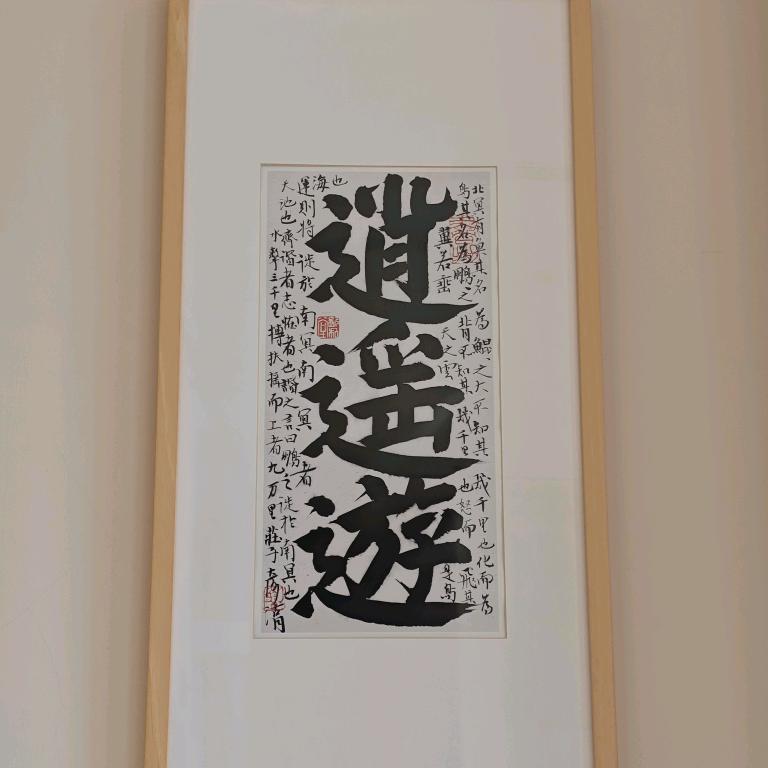 北冥有魚其名為鯤、之大不知其幾千里也化而為
鳥其名為鵬之背不知其幾千里也怒而飛其
翼若垂天之雲是鳥
逍遙遊
也海運則將徙於南冥南冥者
天池也齊諧者志怪者也諧之言曰鵬之徙於南冥也
水擊三千里摶扶搖而上者九万里莊子